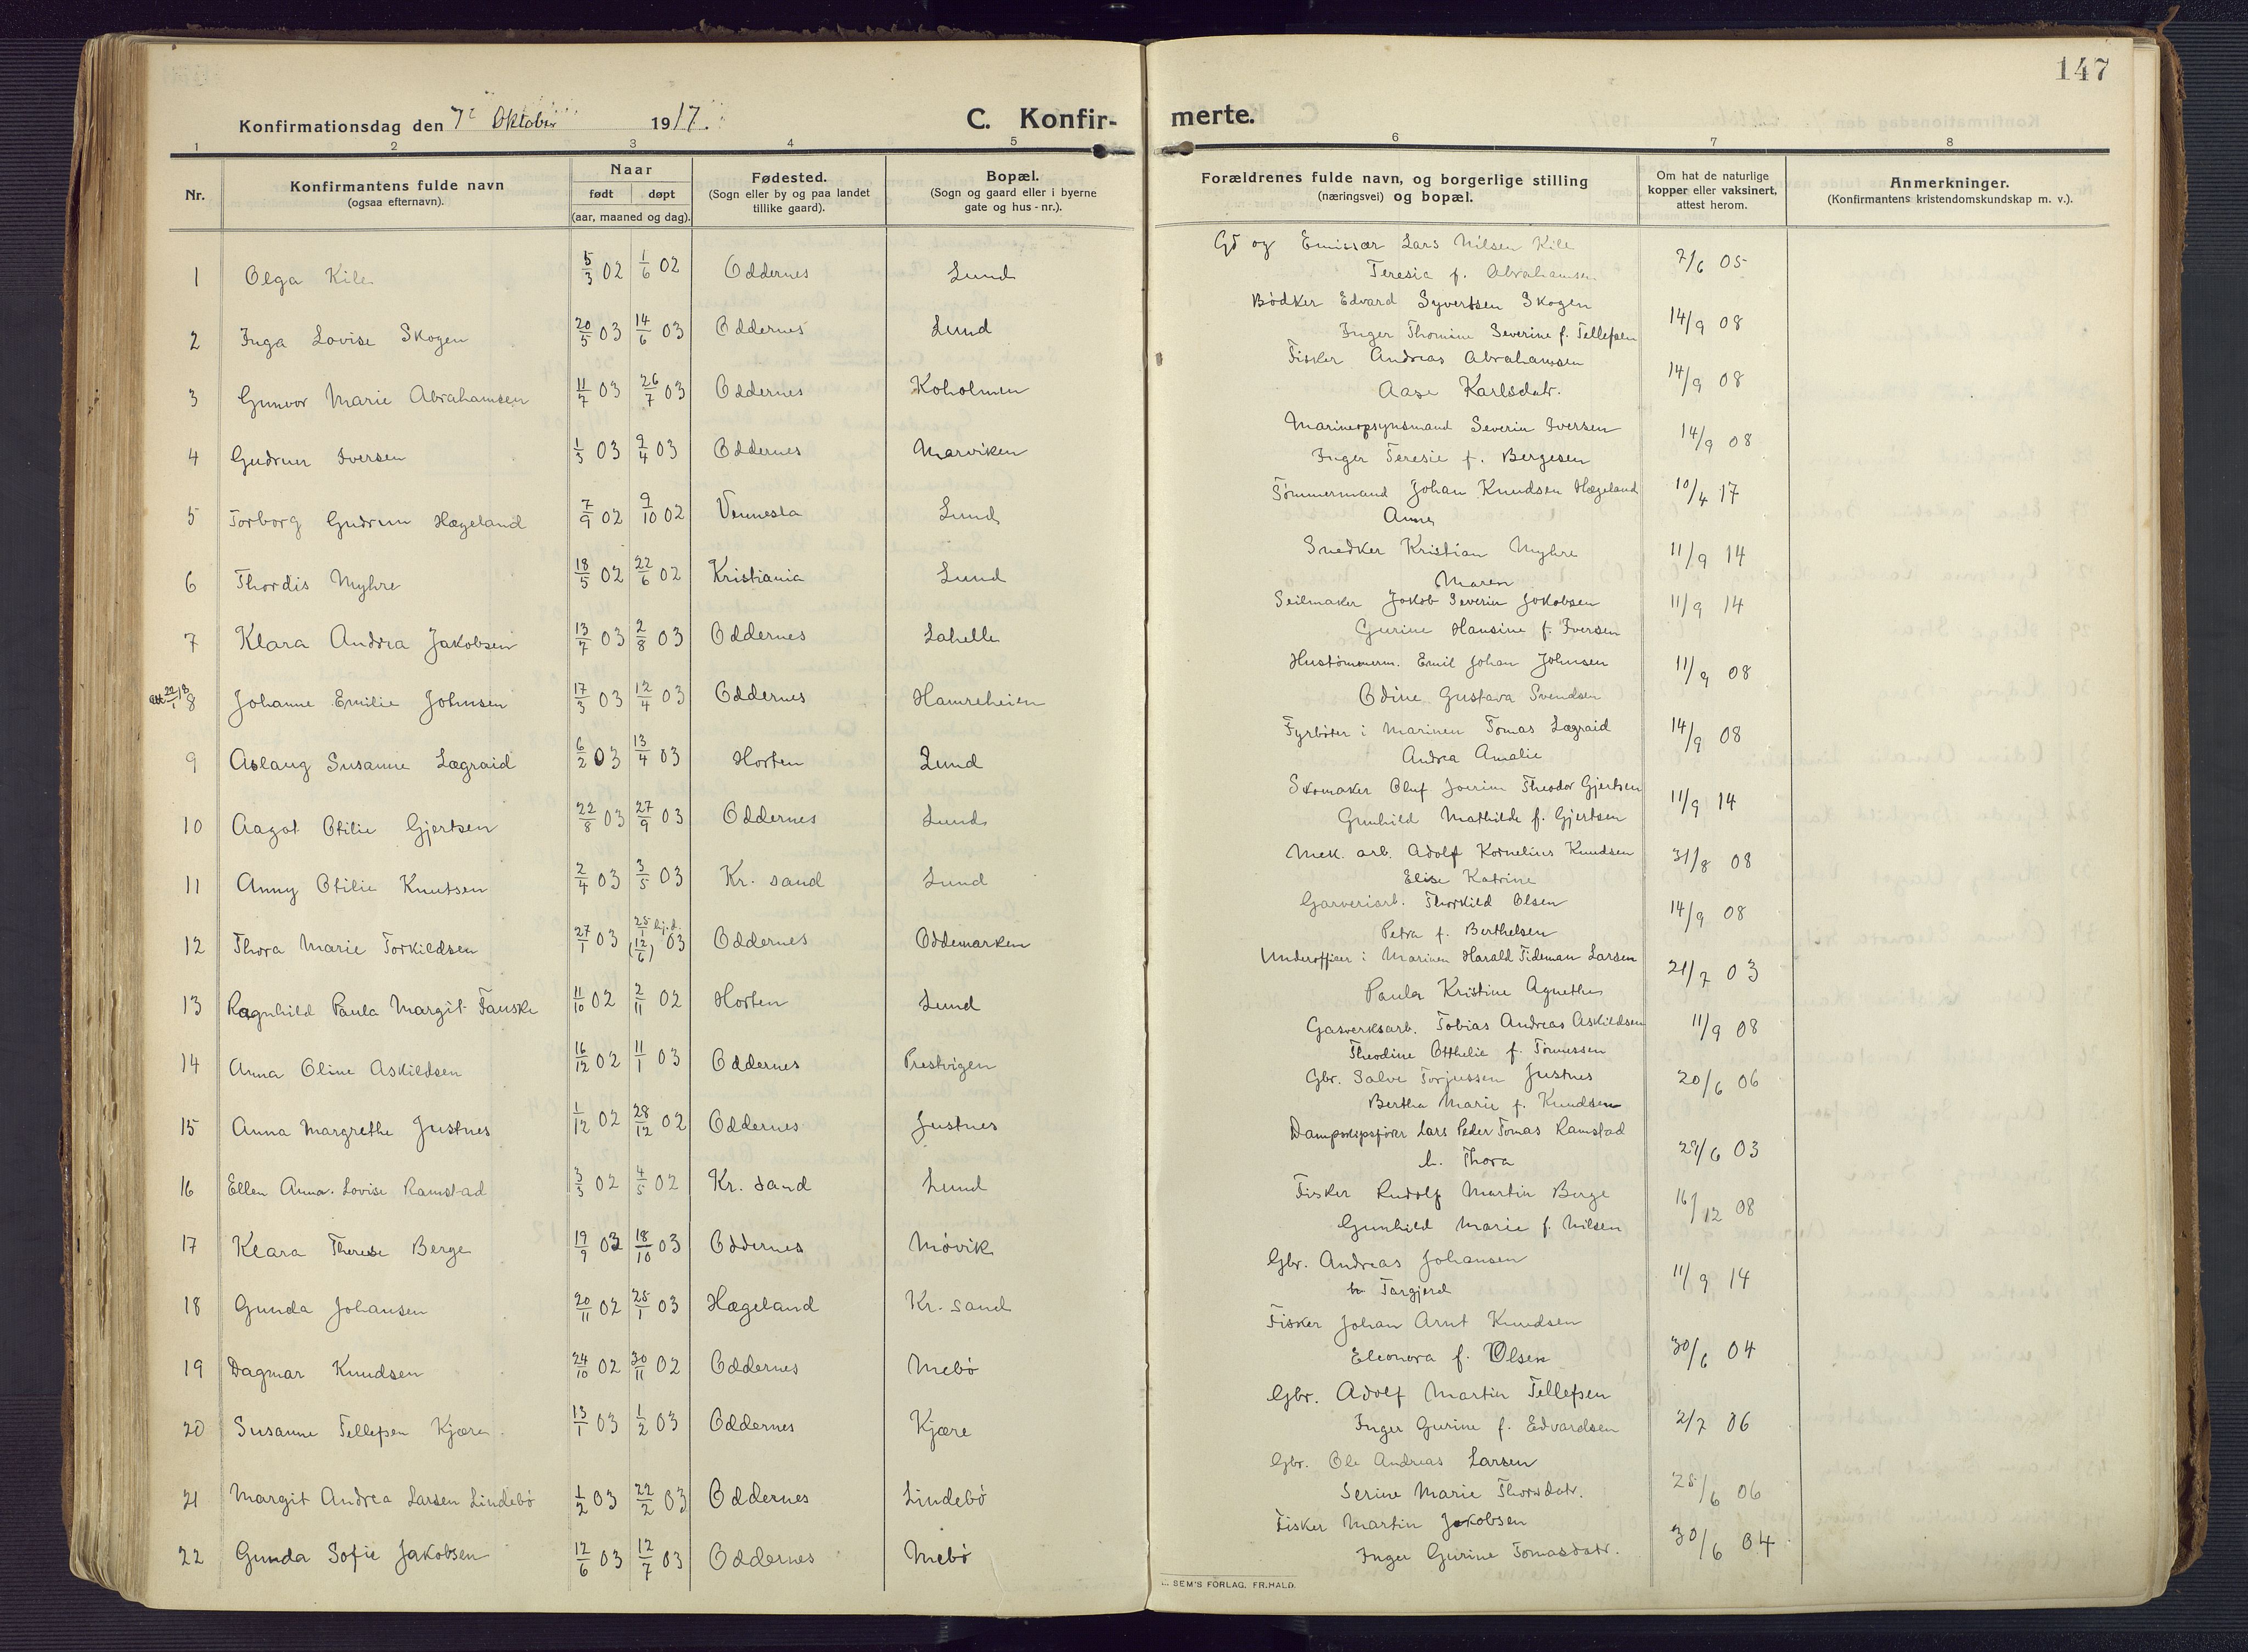 147
Konfirmationsdag den 7de Oktober 1917.
C. Konfir-
merte.
1 2 3 4 5 6 7 8
Nr.
Konfirmantens fulde navn
(ogsaa efternavn).
Naar
født døpt
(aar, maaned og dag).
Fødested.
(Sogn eller by og paa landet
tillike gaard).
Bopæl.
(Sogn og gaard eller i byerne
gate og hus-nr.).
Forældrenes fulde navn, og borgerlige stilling
(næringsvei) og bopæl.
Om hat de naturlige
kopper eller vaksinert,
attest herom.
Anmerkninger.
(Konfirmantens kristendomskundskap m. v.).
1 Olga Kile 5/3 02 1/6 02 Oddernes Lund
Emissær Lars Nilsen Kile
Teresia f. Abrahamsen
7/6 05
2 Inga Lovise Skogen 20/5 03 14/6 03 Oddernes Lund
Bødker Edvard Syvertsen Skogen
Inger Thomine Severine f. Tellefsen
14/9 08
3 Gunvor Marie Abrahamsen 11/7 03 26/7 03 Oddernes Koholmen
Fisker Andreas Abrahamsen
Aase Karlsdatr.
14/9 08
4 Gudrun Iversen 1/3 03 9/4 03 Oddernes Marviken
Marineopsynsmand Severin Iversen
Inger Teresie f. Bergesen
14/9 08
5 Torborg Gudrun Hægeland 7/9 02 9/10 02 Vennesla Lund
Tømmermand Johan Knudsen Hægeland
Anne
10/4 17
6 Thordis Myhre 18/5 02 22/6 02 Kristiania Lund
Snedker Kristian Myhre
Maren
11/9 14
7 Klara Andrea Jakobsen 13/7 03 2/8 03 Oddernes Lahelle
Seilmaker Jakob Severin Jakobsen
Gurine Hansine f. Iversen
11/9 14
8 Johanne Emilie Johnsen 17/3 03 12/4 03 Oddernes Hamreheien
Hustømmerm. Emil Johan Johnsen
Odine Gustava Svendsen
11/9 08
9 Aslaug Susanne Lægraid 6/2 03 13/4 03 Horten Lund
Fyrbøter i Marinen Tomas Lægraid
Andrea Amalie
14/9 08
10 Aagot Otilie Gjertsen 22/8 03 27/9 03 Oddernes Lund
Skomaker Oluf Joerim Theodor Gjertsen
Gunhild Mathilde f. Gjertsen
11/9 14
11 Anny Otilie Knutsen 2/4 03 3/5 03 Kr. sand Lund
Mek. arb. Adolf Kornelius Knudsen
Elise Katrine
31/8 08
12 Thora Marie Torkildsen 27/1 03 25/1 hj.d. (12/6) 03 Oddernes Oddemarken
Garveriarb. Thorkild Olsen
Petra f. Berthelsen
14/9 08
13 Ragnhild Paula Margit Fauske 11/10 02 2/11 02 Horten Lund
Underofficer i Marinen Harald Tideman Larsen
Paula Kristine Agnethe
21/7 03
14 Anna Oline Askildsen 16/12 02 11/1 03 Oddernes Prestvigen
Gasverksarb. Tobias Andreas Askildsen
Theodine Otthelie f. Tønnessen
11/9 08
15 Anna Margrethe Justnes 1/12 02 28/12 02 Oddernes Justnes
Gbr. Salve Torjussen Justnes
Bertha Marie f. Knudsen
20/6 06
16 Ellen Anna Lovise Ramstad 3/3 02 4/5 02 Kr. sand Lund
Dampskipsfører Lars Peder Tomas Ramstad
h. Thora
29/6 03
17 Klara Therese Berge 19/9 02 18/10 03 Oddernes Møvik
Fisker Rudolf Martin Berge
Gunhild Marie f. Nilsen
16/12 08
18 Gunda Johansen 20/11 02 25/1 03 Hægeland Kr. sand
Gbr. Andreas Johansen
h. Targjerd
11/9 14
19 Dagmar Knudsen 24/10 02 30/11 02 Oddernes Mebø
Fisker Johan Arnt Knudsen
Eleonora f. Olsen
30/6 04
20 Susanne Tellefsen Kjære 13/1 03 1/2 03 Oddernes Kjære
Gbr. Adolf Martin Tellefsen
Inger Gurine f. Edvardsen
2/7 06
21 Margit Andrea Larsen Lindebø 1/2 03 22/2 03 Oddernes Lindebø
Gbr. Ole Andreas Larsen
Serine Marie Thorsdatr.
25/6 06
22 Gunda Sofie Jakobsen 12/6 03 12/7 03 Oddernes Mebø
Fisker Martin Jakobsen
Inger Gurine Tomasdatr.
30/6 04
SEM'S FORLAG, FR.HALD.